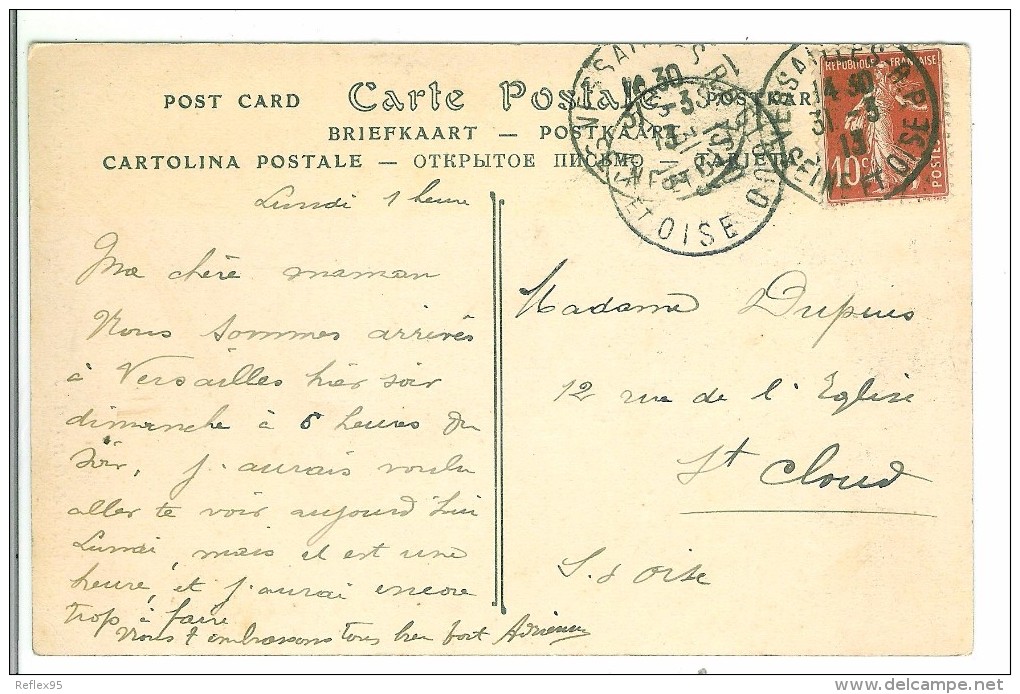 POST CARD Carte Postale POSTKARTE
BRIEFKAART — POSTKAART
CARTOLINA POSTALE — ОТКРЫТОЕ ПИСЬМО —
VERSAILLES R.P.
SEINE ET OISE
14 30
31 - 3
13
REPUBLIQUE FRANÇAISE
10 c
POSTES
Lundi 1 heure
Ma chère maman
Nous sommes arrivés
à Versailles hier soir
dimanche à 6 heures du
soir, j'aurais voulu
aller te voir aujourd'hui
Lundi, mais il est une
heure, et j'aurai encore
trop à faire
Nous t embrassons tous bien fort Adrienne
Madame Dupuis
12 rue de l'Eglise
St Cloud
S. d oise
Reflex95
delcampe.net